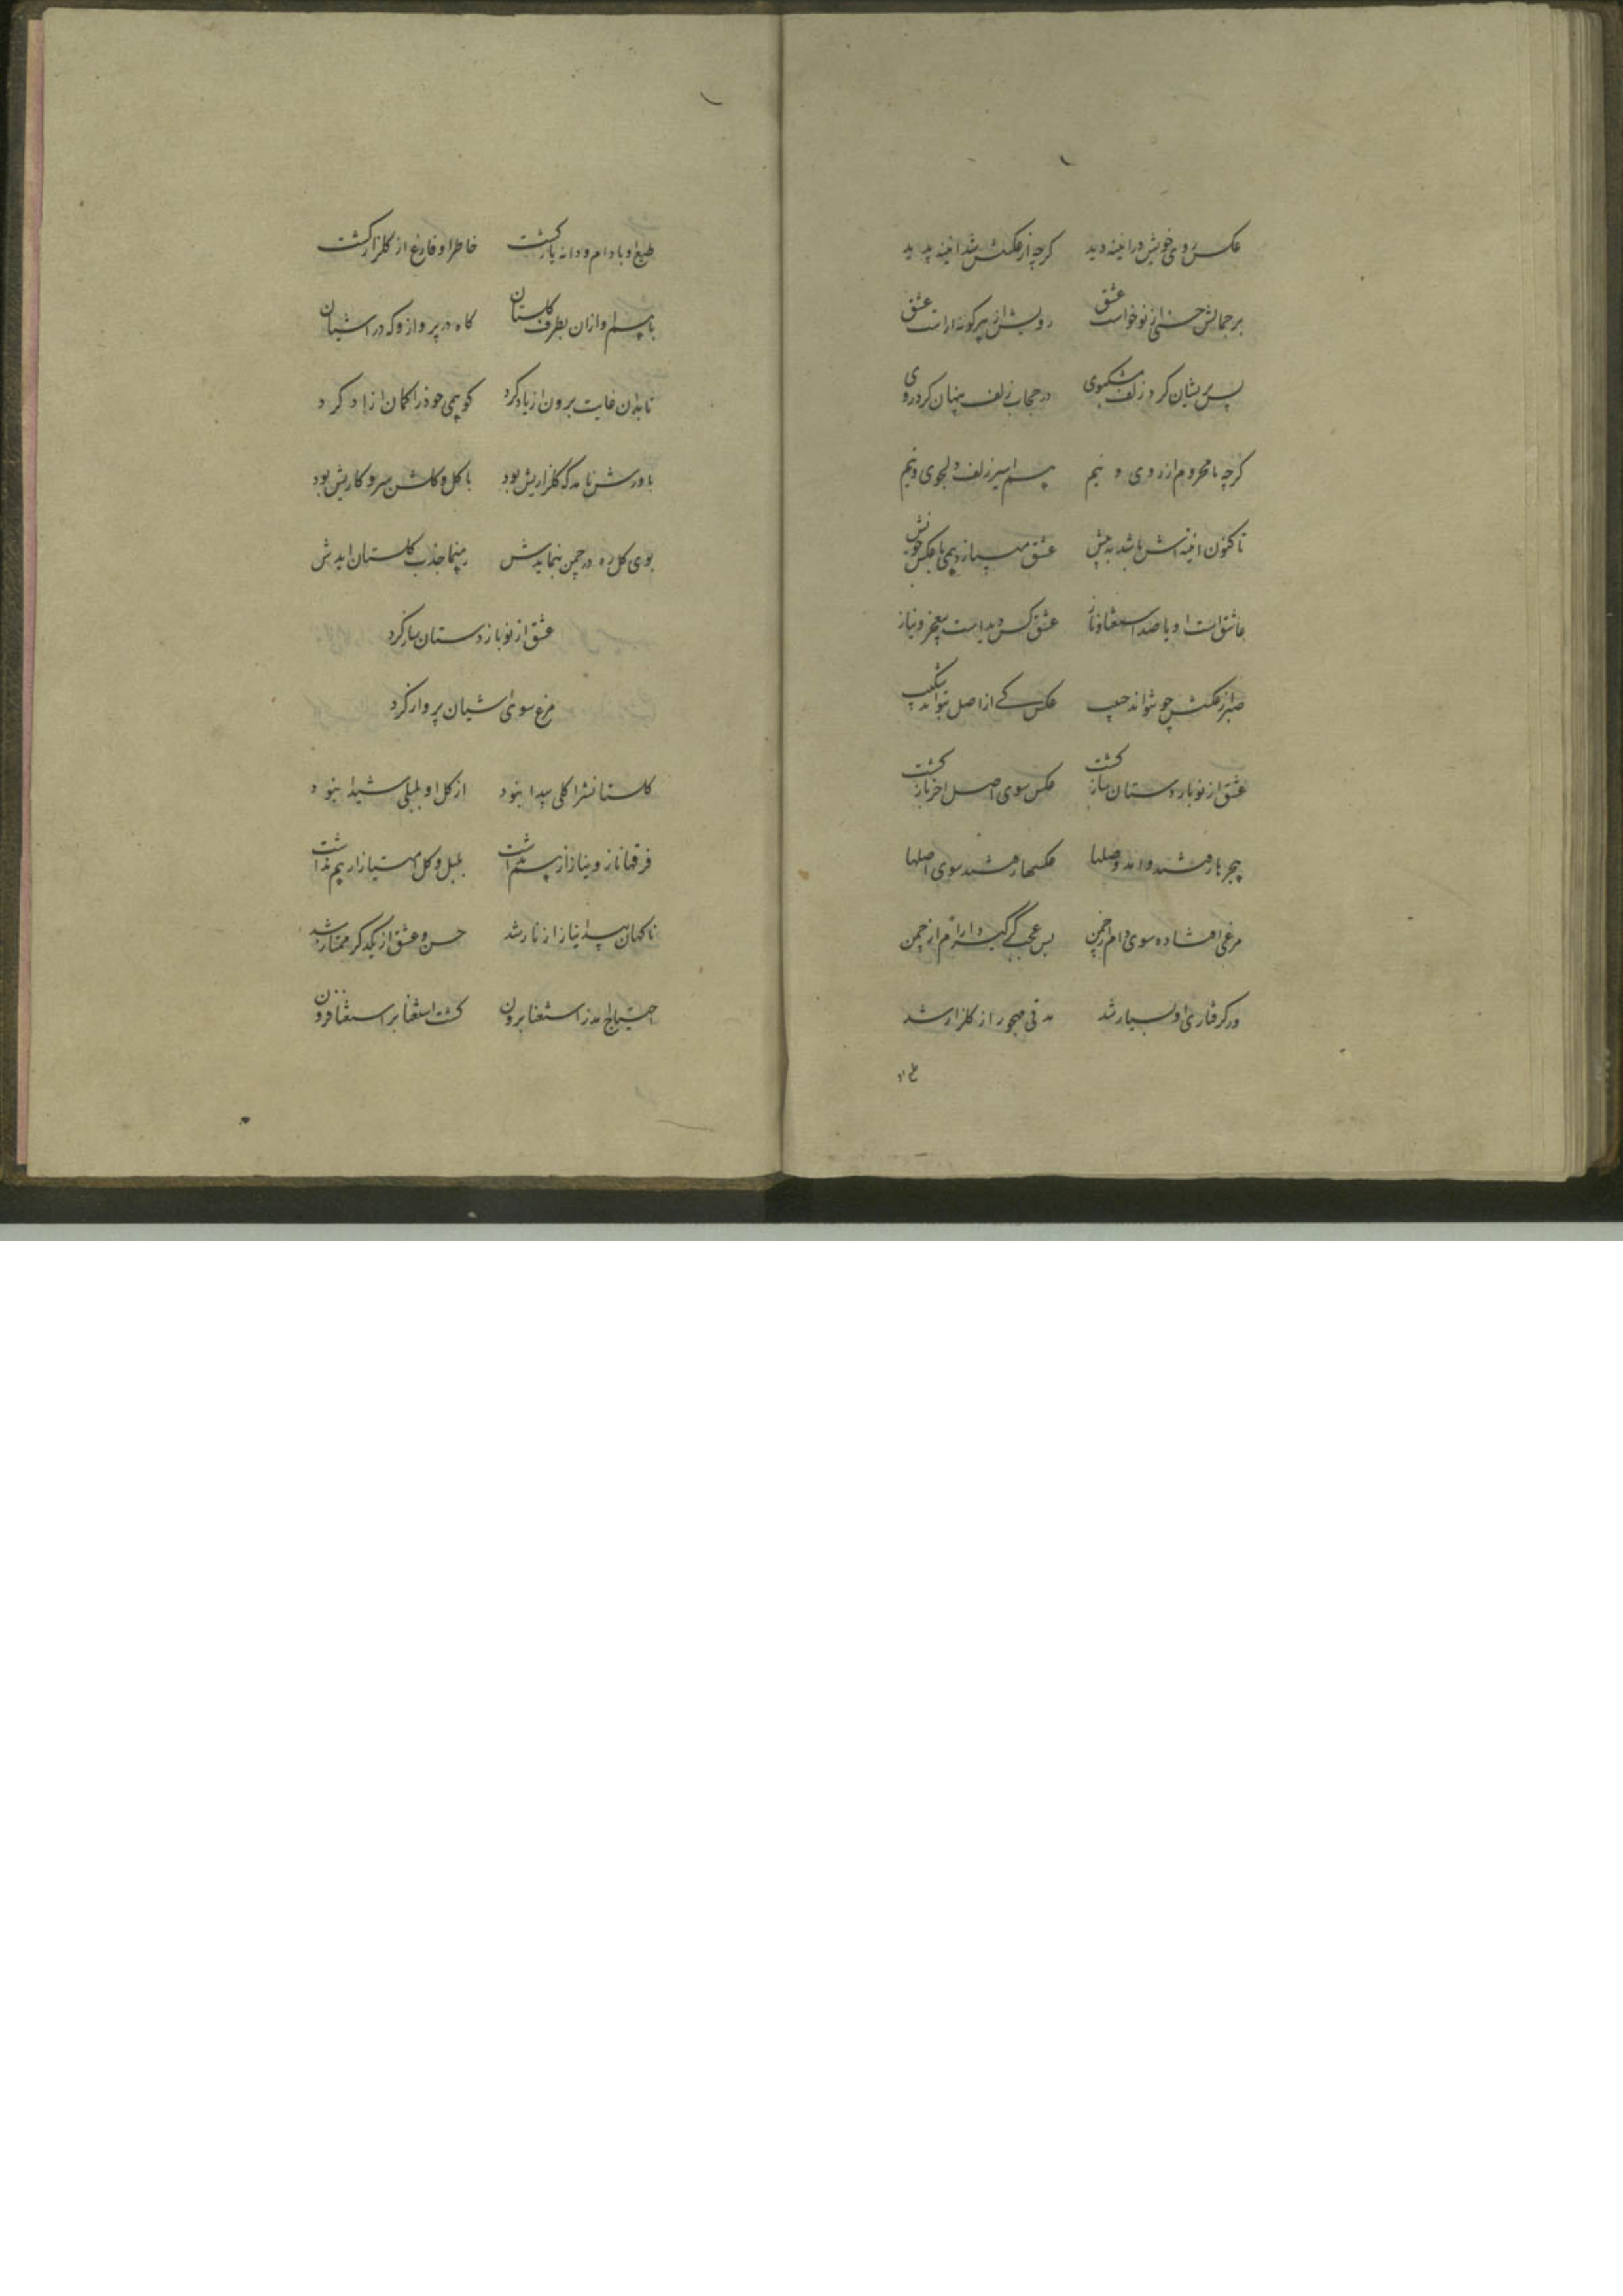 عکس روی خویش در اینه دید کرچه از عکسش شد اینه پدید
بر جمالش حسنی از نو خواست عشق رویش از هر کونه اراست عشق
پس پریشان کرد زلف مشکبوی در حجاب زلف پنهان کرد روی
کرچه نامحروم از روی ویم هم اسیر زلف دلجوی ویم
تا کنون اینه اش باشد به پیش عشق میبازد همی با عکس خویش
عاشق است او با صد استغنا و ناز عشق کس دیده است بیعجز و نیاز
صبر از عکسش چو نتواند حبیب عکس کے از اصل بتواند شکیب
عشق از نو باز دستان ساز کشت عکس سوی اصل اخر باز کشت
هجرها رفتند و امد وصلها عکسها رفتند سوی اصلها
مرغی افتاده سوی دام از چمن بس عجب کے کیرد ارام از چمن
در کرفتاری او بسیار شد مدتی مهجور از کلزار شد
طبع او
طبع او با دام و دانه یار کشت خاطر او فارغ از کلزار کشت
با هم اوازان بطرف کلستان کاه در پرواز و که در اشیان
تا بدان غایت برون از یاد کرد کو همی خود را کمان ازاد کرد
باورش نامد که کلزاریش بود با کل و کلشن سر و کاریش بود
بوی کل ره در چمن بنمایدش رهنما جذب کلستان ایدش
عشق از نو باز دستان ساز کرد
مرغ سوی اشیان پرواز کرد
کلستانش را کلی پیدا نبود از کل او بلبلی شیدا نبود
فرقها ناز و نیاز از هم نداشت بلبل و کل امتیاز از هم نداشت
ناکهان پیدا نیاز از ناز شد حسن و عشق از یکدکر ممتاز شد
احتیاج امد ز استغنا برون کشت استغنا بر استغنا فزون